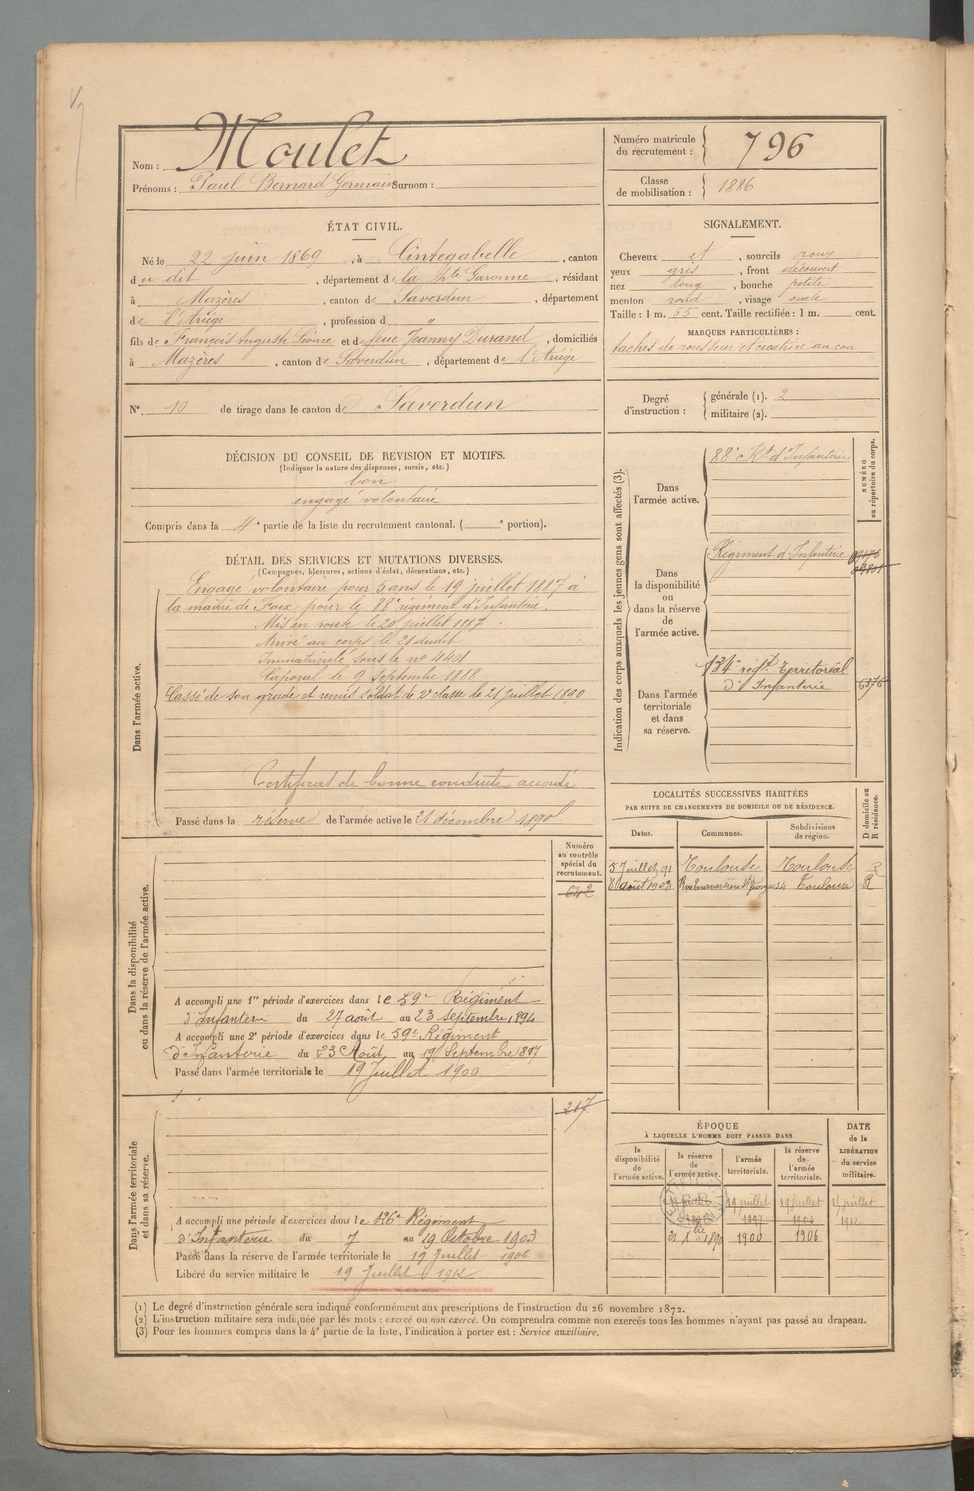 Nom : Moulet
Prénoms : Paul Bernard Germain Surnom :
Numéro matricule du recrutement : 796
Classe de mobilisation : 1886
ÉTAT CIVIL.
Né le 22 juin 1869, à Cintegabelle, canton
du dit, département de la Hte Garonne, résidant
à Mazères, canton de Saverdun, département
de l'Ariège, profession d "
fils de François Auguste Léonce et de feue Jeanne Durand, domiciliés
à Mazères, canton de Saverdun, département de l'Ariège
N°. 10 de tirage dans le canton de Saverdun
SIGNALEMENT.
Cheveux et, sourcils roux
yeux gris, front découvert
nez long, bouche petite
menton rond, visage ovale
Taille : 1 m. 65 cent. Taille rectifiée : 1 m. cent.
MARQUES PARTICULIÈRES :
taches de rousseur et cicatrice au cou
Degré d'instruction : générale (1). 2
militaire (2).
DÉCISION DU CONSEIL DE REVISION ET MOTIFS.
(Indiquer la nature des dispenses, sursis, etc.)
bon
engagé volontaire
Compris dans la 4e partie de la liste du recrutement cantonal. ( e portion).
DÉTAIL DES SERVICES ET MUTATIONS DIVERSES.
(Campagnes, blessures, actions d'éclat, décorations, etc.)
Dans l'armée active.
Engagé volontaire pour 5 ans le 19 juillet 1887 à
la mairie de Foix pour le 88e régiment d'Infanterie.
Mis en route le 20 juillet 1887.
Arrivé au corps le 21 dudit
Immatriculé sous le no 4401
Caporal le 9 Septembre 1888
Cassé de son grade et remis soldat de 2e classe le 21 Juillet 1890
Certificat de bonne conduite accordé
Passé dans la réserve de l'armée active le 21 décembre 1890
Indication des corps auxquels les jeunes gens sont affectés (3).
NUMÉRO au répertoire du corps.
Dans l'armée active.
88e Rt d'Infanterie
Dans la disponibilité ou dans la réserve de l'armée active.
Régiment d'Infanterie
Dans l'armée territoriale et dans sa réserve.
134e régt. Territorial
d'Infanterie
6376
LOCALITÉS SUCCESSIVES HABITÉES
PAR SUITE DE CHANGEMENTS DE DOMICILE OU DE RÉSIDENCE.
D domicile ou R résidence.
Dates. Communes. Subdivisions de région.
5 Juillet 91 Toulouse Toulouse R
août 1903 Toulouse R
Dans la disponibilité
ou dans la réserve de l'armée active.
Numéro au contrôle spécial du recrutement.
642
A accompli une 1re période d'exercices dans le 59e Régiment
d'Infanterie du 27 août au 23 septembre 1894
A accompli une 2e période d'exercices dans le 59e Régiment
d'Infanterie du 23 Août au 19 Septembre 1897
Passé dans l'armée territoriale le 19 Juillet 1900
Dans l'armée territoriale
et dans sa réserve.
217
A accompli une période d'exercices dans le 126e Régiment
d'Infanterie du 7 au 19 Octobre 1903
Passé dans la réserve de l'armée territoriale le 19 Juillet 1906
Libéré du service militaire le 19 Juillet 1912
ÉPOQUE
À LAQUELLE L'HOMME DOIT PASSER DANS
la disponibilité de l'armée active.
la réserve de l'armée active.
l'armée territoriale.
la réserve de l'armée territoriale.
DATE de la LIBÉRATION du service militaire.
19 juillet 19 juillet juillet
1897 1912
1900 1906
(1) Le degré d'instruction générale sera indiqué conformément aux prescriptions de l'instruction du 26 novembre 1872.
(2) L'instruction militaire sera indiquée par les mots : exercé ou non exercé. On comprendra comme non exercés tous les hommes n'ayant pas passé au drapeau.
(3) Pour les hommes compris dans la 4e partie de la liste, l'indication à porter est : Service auxiliaire.